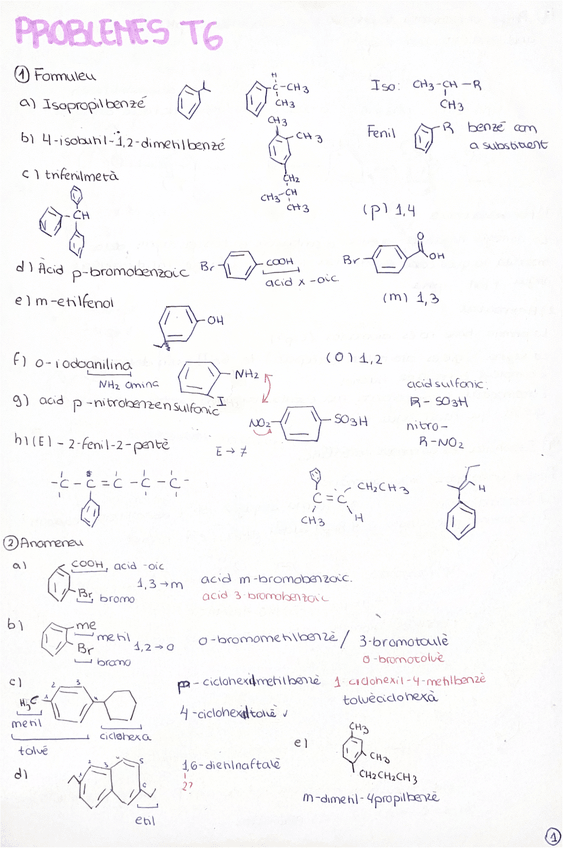 PROBLEMES T6
① Formuleu
a) Isopropilbenzé
H
C-CH3
CH3
Iso: CH3-CH-R
CH3
b) 4-isobutil-1,2-dimetilbenzé
CH3
CH3
CH2
CH3-CH
CH3
Fenil R benzé com
a substituent
c) trifenilmetà
CH
(p) 1,4
d) Àcid p-bromobenzoic
Br COOH
acid x-oic
Br O OH
e) m-etilfenol
OH
(m) 1,3
f) o-iodoanilina
NH2 amina
NH2
I
(O) 1,2
g) acid p-nitrobenzensulfonic
NO2 SO3H
acid sulfonic.
R-SO3H
nitro-
R-NO2
h) (E)-2-fenil-2-pentè
E → ≠
-C-C=C-C-C-
C=C
CH2CH3
CH3
H
H
② Anomeneu
a) COOH, acid -oic
Br
bromo
1,3→m
acid m-bromobenzoic.
acid 3-bromobenzoic
b) me
metil
Br
bromo
1,2→o
o-bromometilbenzé / 3-bromotoulè
o-bromotoluè
c) 2 3
H3C
metil
ciclohexà
tolué
p-ciclohexilmetilbenzé
1 ciclohexil-4-metilbenzé
4-ciclohexiltoluè ✓
toluèciclohexà
d) etil
1,6-dietilnaftalè
2?
e) CH3
CH3
CH2CH2CH3
m-dimetil-4propilbenzé
①